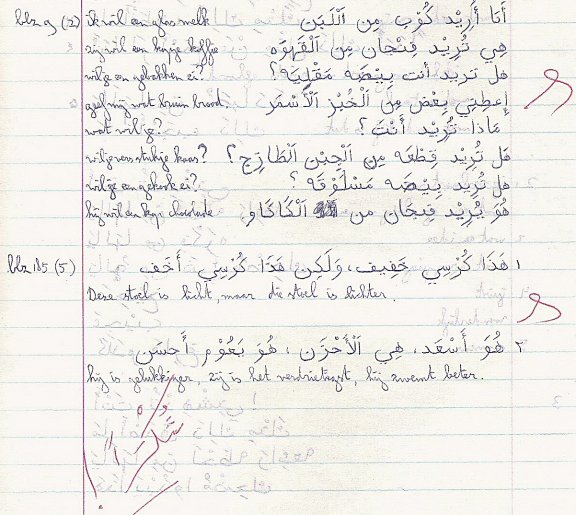 blz 9 (2) ik wil een glas melk أَنَا أُرِيْد كُوْب مِن اَللَّبَن
zij wil een kopje koffie هِي تُرِيْد فِنْجَان مِن اَلْقَهْوَه
wil je een gebakken ei? هَل تريد أنت بِيْضَه مَقْلِيَه؟
geef mij wat bruin brood. إِعطِنِي بَعْض مِن اَلْخُبْز اَلْأَسْمَر
wat wil je? مَاذَا تُرِيْد أَنْتَ؟
wil je vers stukje kaas? هَل تُرِيْد قِطْعَه مِن اَلْجِبْن اَلْطَازِج؟
wil je een gekookt ei? هَل تُرِيْد بِيْضَه مَسْلُوْقَه؟
hij wil een kop chocolade هُو يُرِيْد فِنْجَان من اَلْكَاكَاو
blz 185 (5) ١ هَذَا كُرْسِي خَفِيف، وَلَكِن هَذَا كُرْسِي أَخَف
Deze stoel is licht, maar die stoel is lichter.
٢ هُوَ أَسْعَد، هِي اَلْأَحْزَن، هُوَ يَعُوْم أَحسَن
hij is gelukkiger, zij is het verdrietigst, hij zwemt beter.